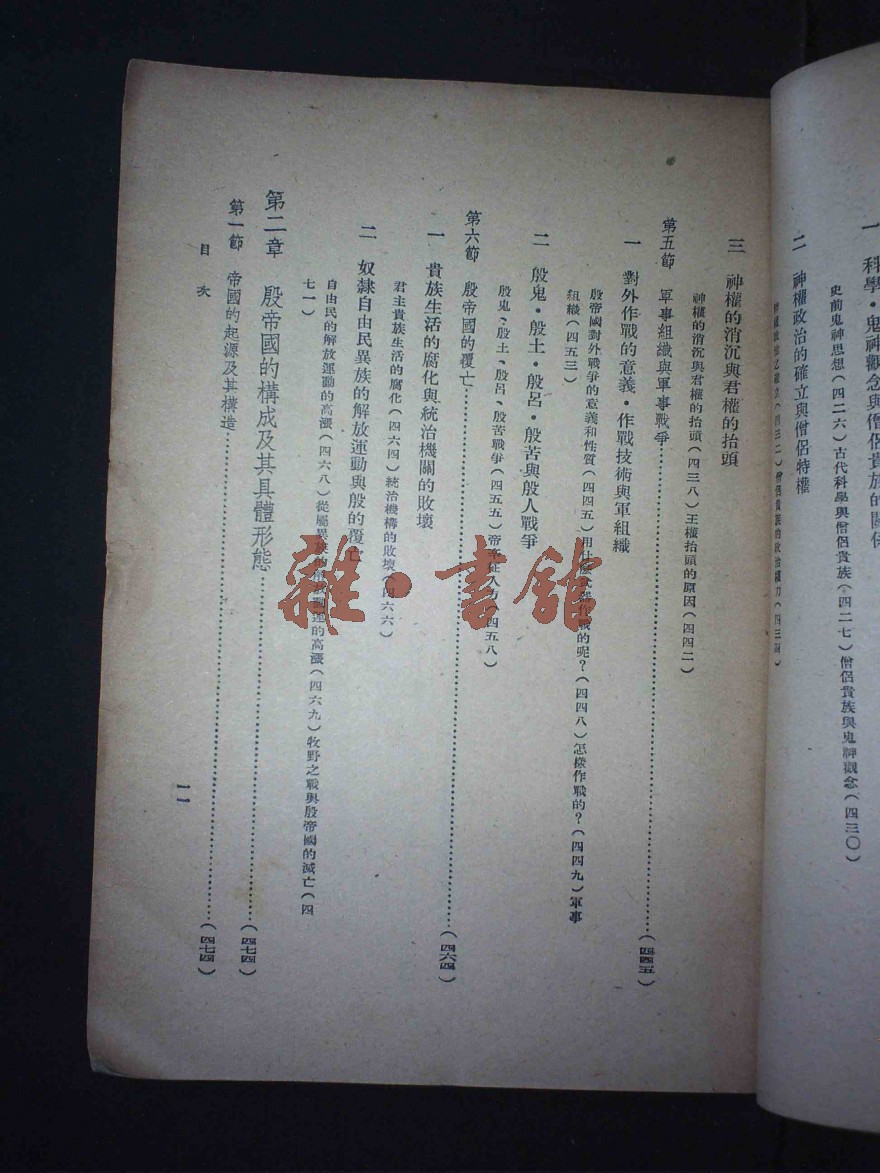 一 科學・鬼神觀念與僧侶貴族的關係
史前鬼神思想(四二六)古代科學與僧侶貴族(四二七)僧侶貴族與鬼神觀念(四三〇)
二 神權政治的確立與僧侶特權
神權政治之確立(四三二)僧侶貴族的政治權力(四三四)
三 神權的消沉與君權的抬頭
神權的消沉與君權的抬頭(四三八)王權抬頭的原因(四四二)
第五節 軍事組織與軍事戰爭………(四四五)
一 對外作戰的意義・作戰技術與軍組織
殷帝國對外戰爭的意義和性質(四四五)用什麼武器作戰的呢?(四四八)怎樣作戰的?(四四九)軍事
組織(四五三)
二 殷鬼・殷土・殷呂・殷苦與殷人戰爭
殷鬼、殷土、殷呂、殷苦戰爭(四五五)帝辛征人方(四五八)
第六節 殷帝國的覆亡………(四六四)
一 貴族生活的腐化與統治機關的敗壞
君主貴族生活的腐化(四六四)統治機構的敗壞(四六六)
二 奴隸自由民異族的解放運動與殷的覆亡
自由民的解放運動的高漲(四六八)從屬異族的解放運的高漲(四六九)牧野之戰與殷帝國的滅亡(四
七一)
第二章 殷帝國的構成及其具體形態………(四七四)
第一節 帝國的起源及其構造………(四七四)
目次
一一
雜・書館